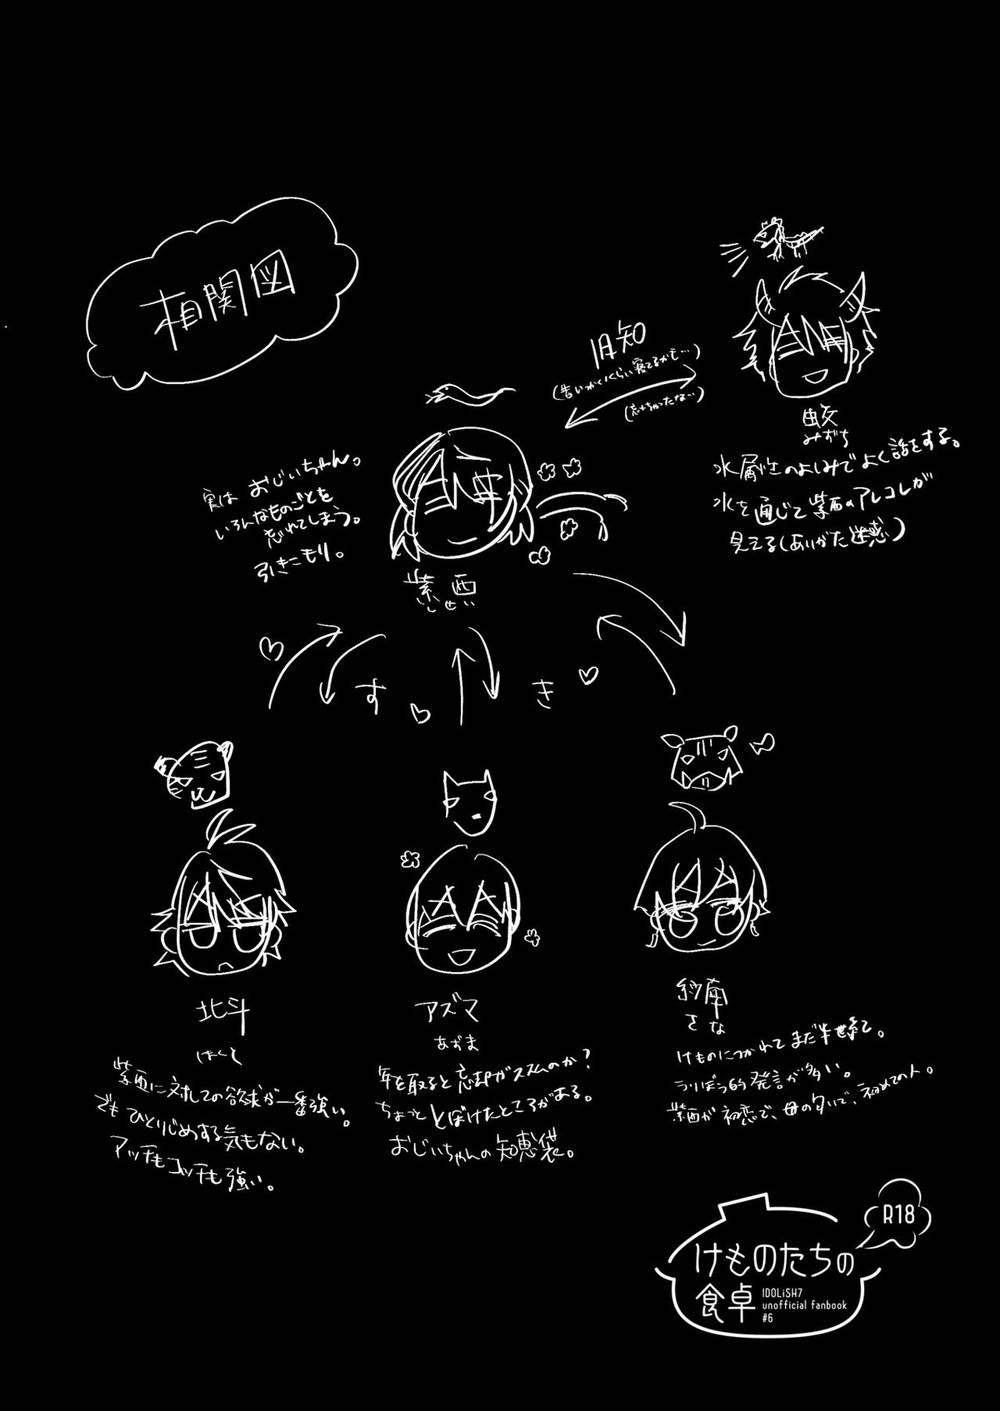 相関図
旧知
(忘れちゃったな…)
蛟
みずち
水属性のよしみでよく話をする。
水を通じて紫西のアレコレが
見えてる(ありがた迷惑)
実は おじいちゃん。
いろんなものごとを
忘れてしまう。
引きこもり。
紫西
しせい
す き
北斗
ほくと
紫西に対しての欲求が一番強い。
でもひとりじめする気もない。
アッチもコッチも強い。
アズマ
あずま
年を取ると忘却がススムのか?
ちょっととぼけたところがある。
おじいちゃんの知恵袋。
紗南
さな
けものにつかれてまだ半世紀。
らんぼう的発言が多い。
紫西が初恋で、母の匂いで、初めての人。
R18
けものたちの
食卓
IDOLiSH7
unofficial fanbook
#6